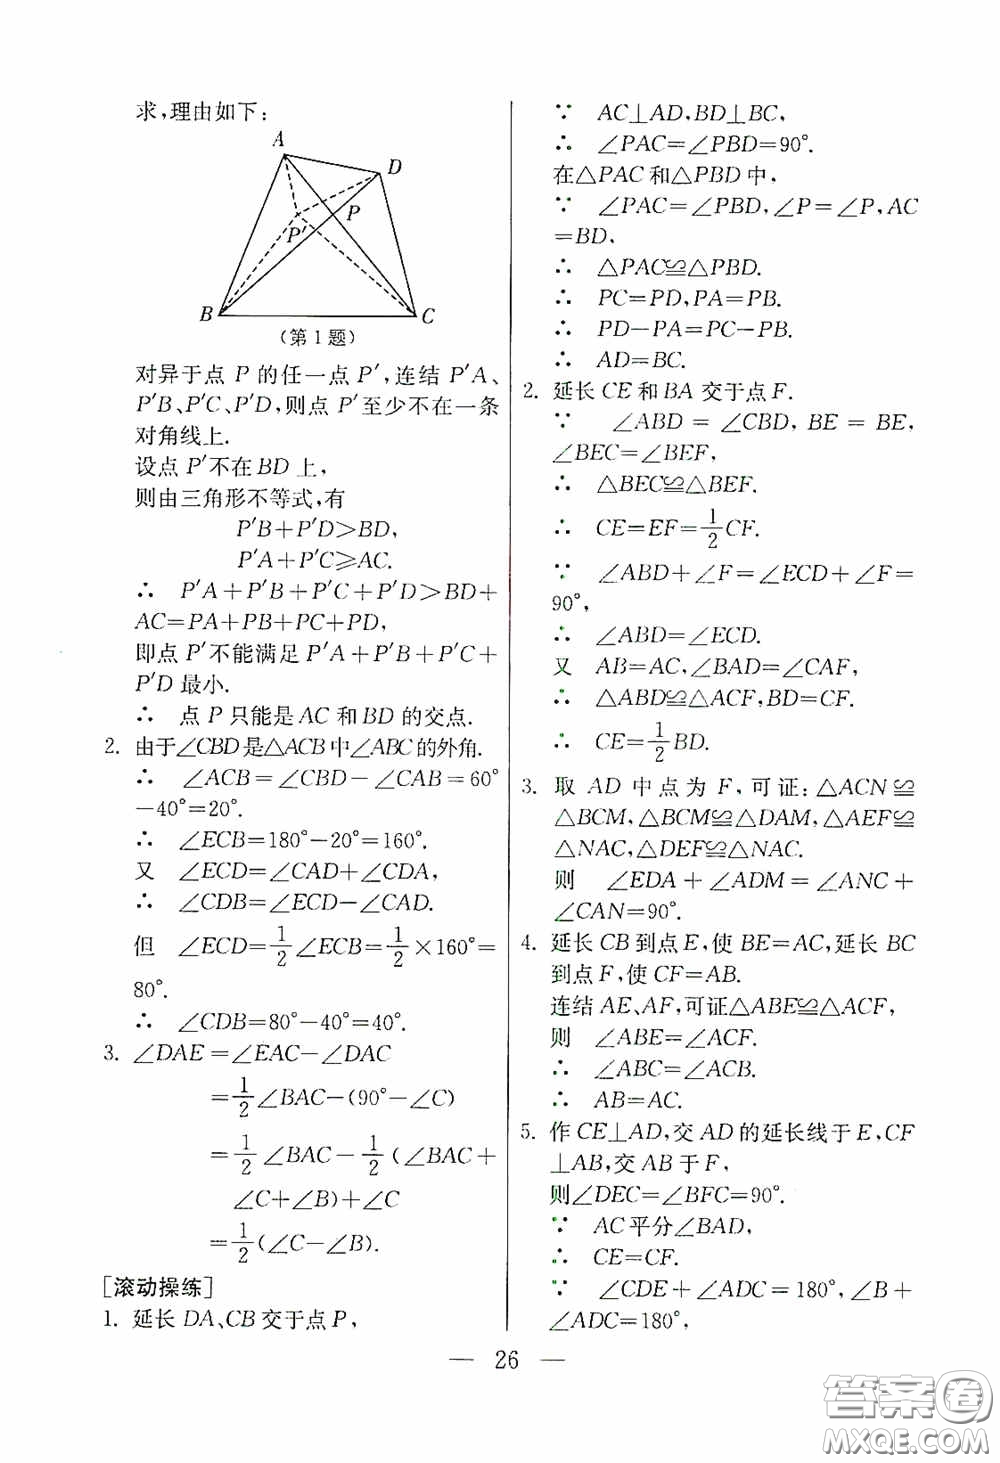 求,理由如下:
A
D
P
P′
B
C
(第1题)
对异于点 P 的任一点 P′,连结 P′A、
P′B、P′C、P′D,则点 P′至少不在一条
对角线上.
设点 P′不在 BD 上,
则由三角形不等式,有
P′B+P′D>BD,
P′A+P′C⩾AC.
∴ P′A+P′B+P′C+P′D>BD+
AC=PA+PB+PC+PD,
即点 P′不能满足 P′A+P′B+P′C+
P′D 最小.
∴ 点 P 只能是 AC 和 BD 的交点.
2. 由于∠CBD是△ACB中∠ABC的外角.
∴ ∠ACB=∠CBD-∠CAB=60°
-40°=20°.
∴ ∠ECB=180°-20°=160°.
又 ∠ECD=∠CAD+∠CDA,
∴ ∠CDB=∠ECD-∠CAD.
但 ∠ECD=1/2∠ECB=1/2×160°=
80°.
∴ ∠CDB=80°-40°=40°.
3. ∠DAE=∠EAC-∠DAC
=1/2∠BAC-(90°-∠C)
=1/2∠BAC-1/2(∠BAC+
∠C+∠B)+∠C
=1/2(∠C-∠B).
[滚动操练]
1. 延长 DA、CB 交于点 P,
∵ AC⊥AD,BD⊥BC,
∴ ∠PAC=∠PBD=90°.
在△PAC 和△PBD 中,
∵ ∠PAC=∠PBD,∠P=∠P,AC
=BD,
∴ △PAC≌△PBD.
∴ PC=PD,PA=PB.
∴ PD-PA=PC-PB.
∴ AD=BC.
2. 延长 CE 和 BA 交于点 F.
∵ ∠ABD=∠CBD,BE=BE,
∠BEC=∠BEF,
∴ △BEC≌△BEF.
∴ CE=EF=1/2CF.
∵ ∠ABD+∠F=∠ECD+∠F=
90°,
∴ ∠ABD=∠ECD.
又 AB=AC,∠BAD=∠CAF,
∴ △ABD≌△ACF,BD=CF.
∴ CE=1/2BD.
3. 取 AD 中点为 F,可证:△ACN≌
△BCM,△BCM≌△DAM,△AEF≌
△NAC,△DEF≌△NAC.
则 ∠EDA+∠ADM=∠ANC+
∠CAN=90°.
4. 延长 CB 到点 E,使 BE=AC,延长 BC
到点 F,使 CF=AB.
连结 AE、AF,可证△ABE≌△ACF,
则 ∠ABE=∠ACF.
∴ ∠ABC=∠ACB.
∴ AB=AC.
5. 作 CE⊥AD,交 AD 的延长线于 E,CF
⊥AB,交 AB 于 F,
则∠DEC=∠BFC=90°.
∵ AC 平分∠BAD,
∴ CE=CF.
∵ ∠CDE+∠ADC=180°,∠B+
∠ADC=180°,
— 26 —
答案圈
MXQE.COM